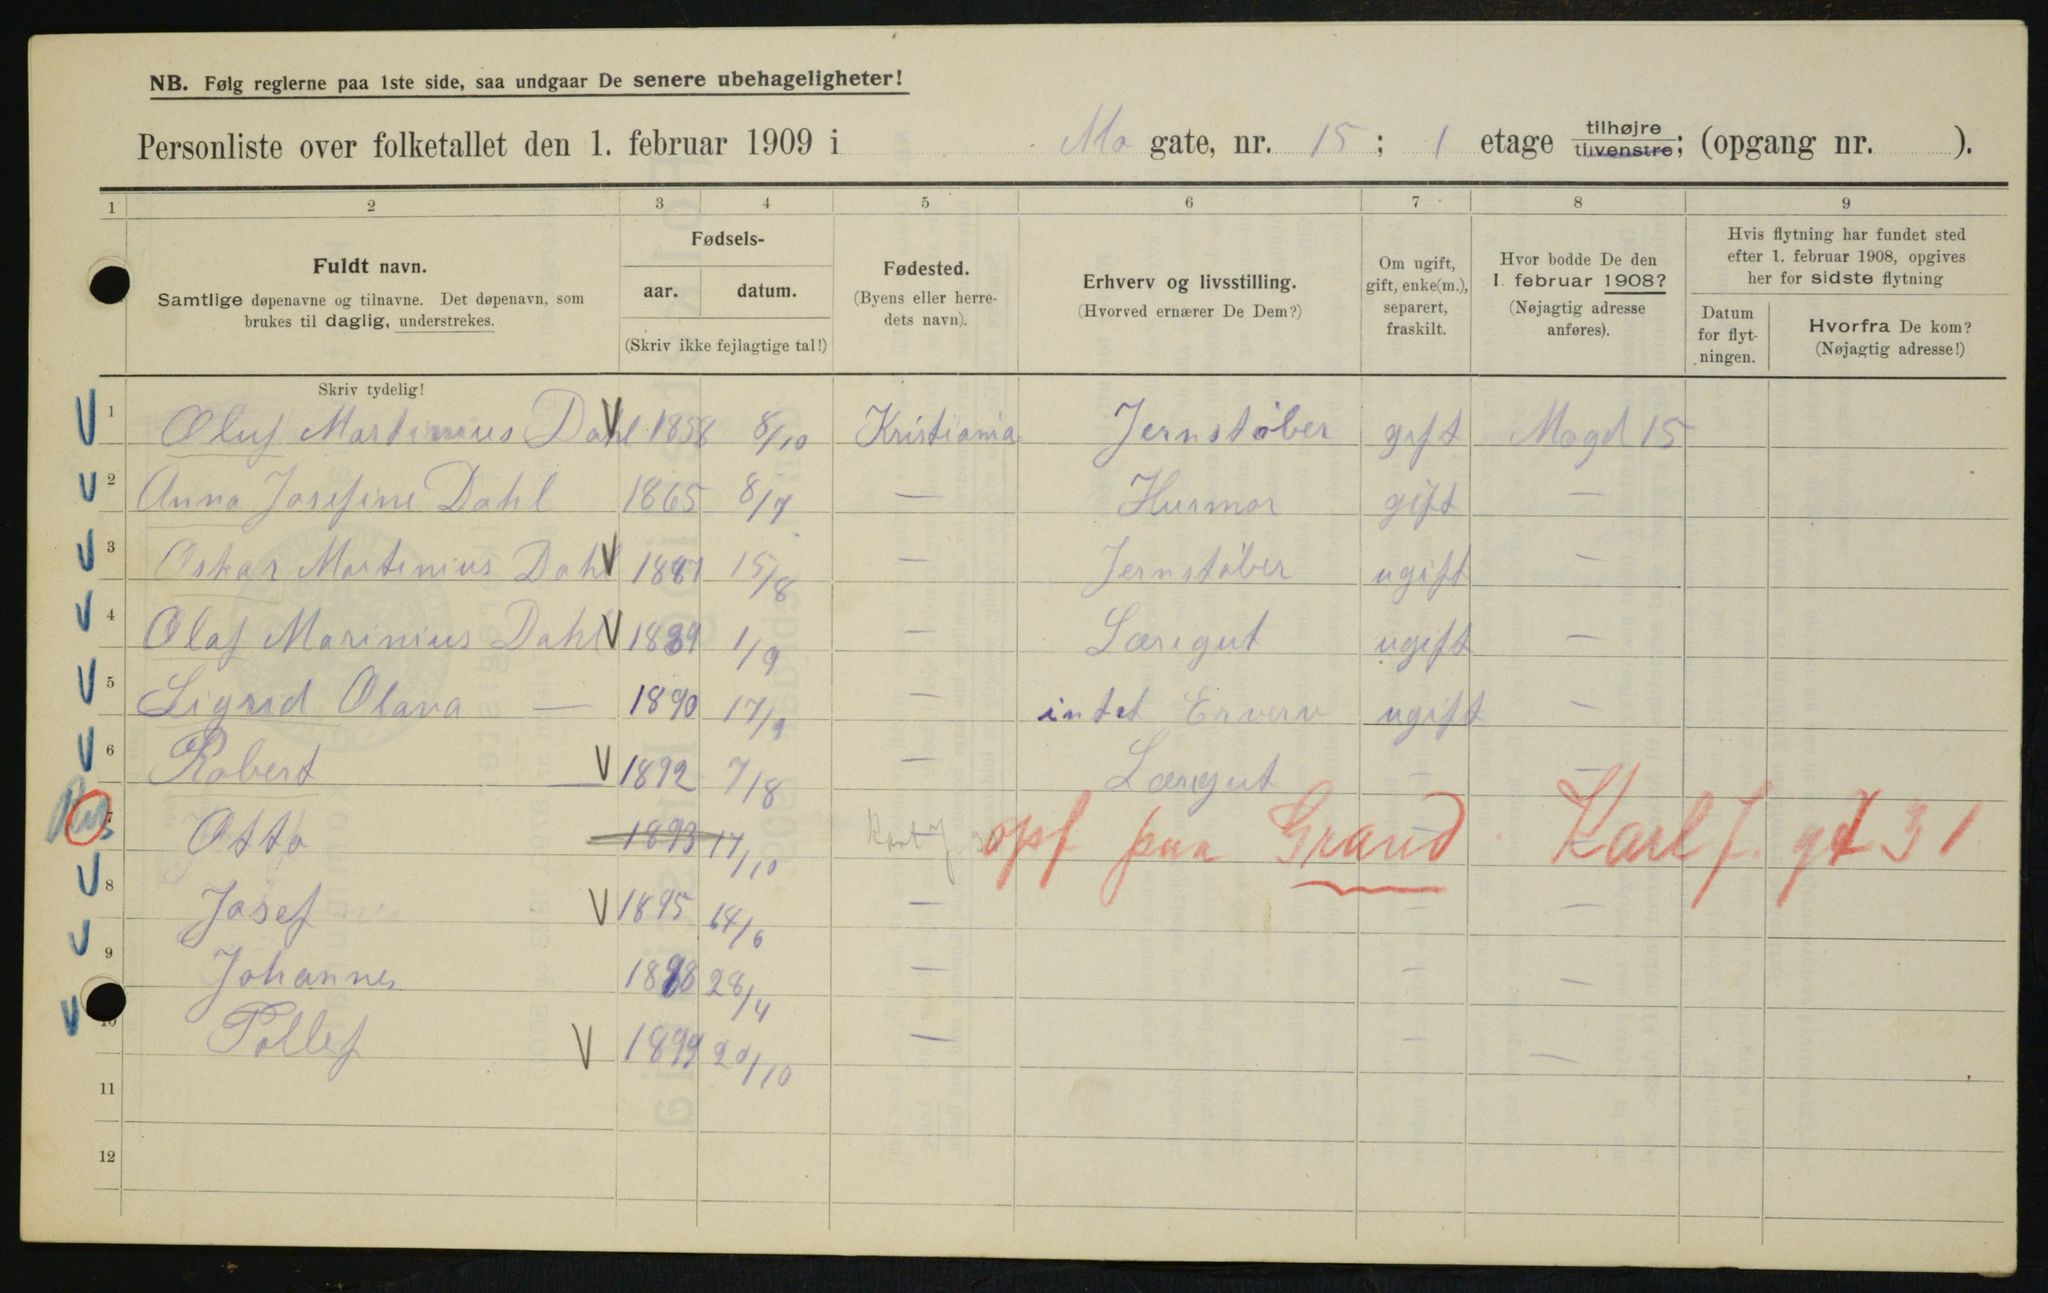 NB. Følg reglerne paa 1ste side, saa undgaar De senere ubehageligheter!
Personliste over folketallet den 1. februar 1909 i Ma gate, nr. 15; 1 etage tilhøjre tilvenstre; (opgang nr. ).
1 2 3 4 5 6 7 8 9
Fuldt navn.
Samtlige døpenavne og tilnavne. Det døpenavn, som
brukes til daglig, understrekes.
Skriv tydelig!
Fødsels-
aar. datum.
(Skriv ikke fejlagtige tal!)
Fødested.
(Byens eller herre-
dets navn).
Erhverv og livsstilling.
(Hvorved ernærer De Dem?)
Om ugift,
gift, enke(m.),
separert,
fraskilt.
Hvor bodde De den
1. februar 1908?
(Nøjagtig adresse
anføres).
Hvis flytning har fundet sted
efter 1. februar 1908, opgives
her for sidste flytning
Datum
for flyt-
ningen.
Hvorfra De kom?
(Nøjagtig adresse!)
1 Oluf Martinius Dahl 1858 8/10 Kristiania Jernstøber gift Magd 15
2 Anna Josefine Dahl 1865 8/7 — Husmor gift —
3 Oskar Martinius Dahl 1887 15/8 — Jernstøber ugift —
4 Olaf Marinius Dahl 1889 1/9 — Læregut ugift —
5 Sigrid Olava — 1890 17/9 — intet Erverv ugift —
6 Robert — 1892 7/8 — Læregut — —
7 Otto 1893 17/10 opf paa Grand. Karl J. gt 31
8 Josef 1895 14/6 — — —
9 Johannes 1898 28/4 — — —
10 Tollef 1899 20/10 — — —
11
12